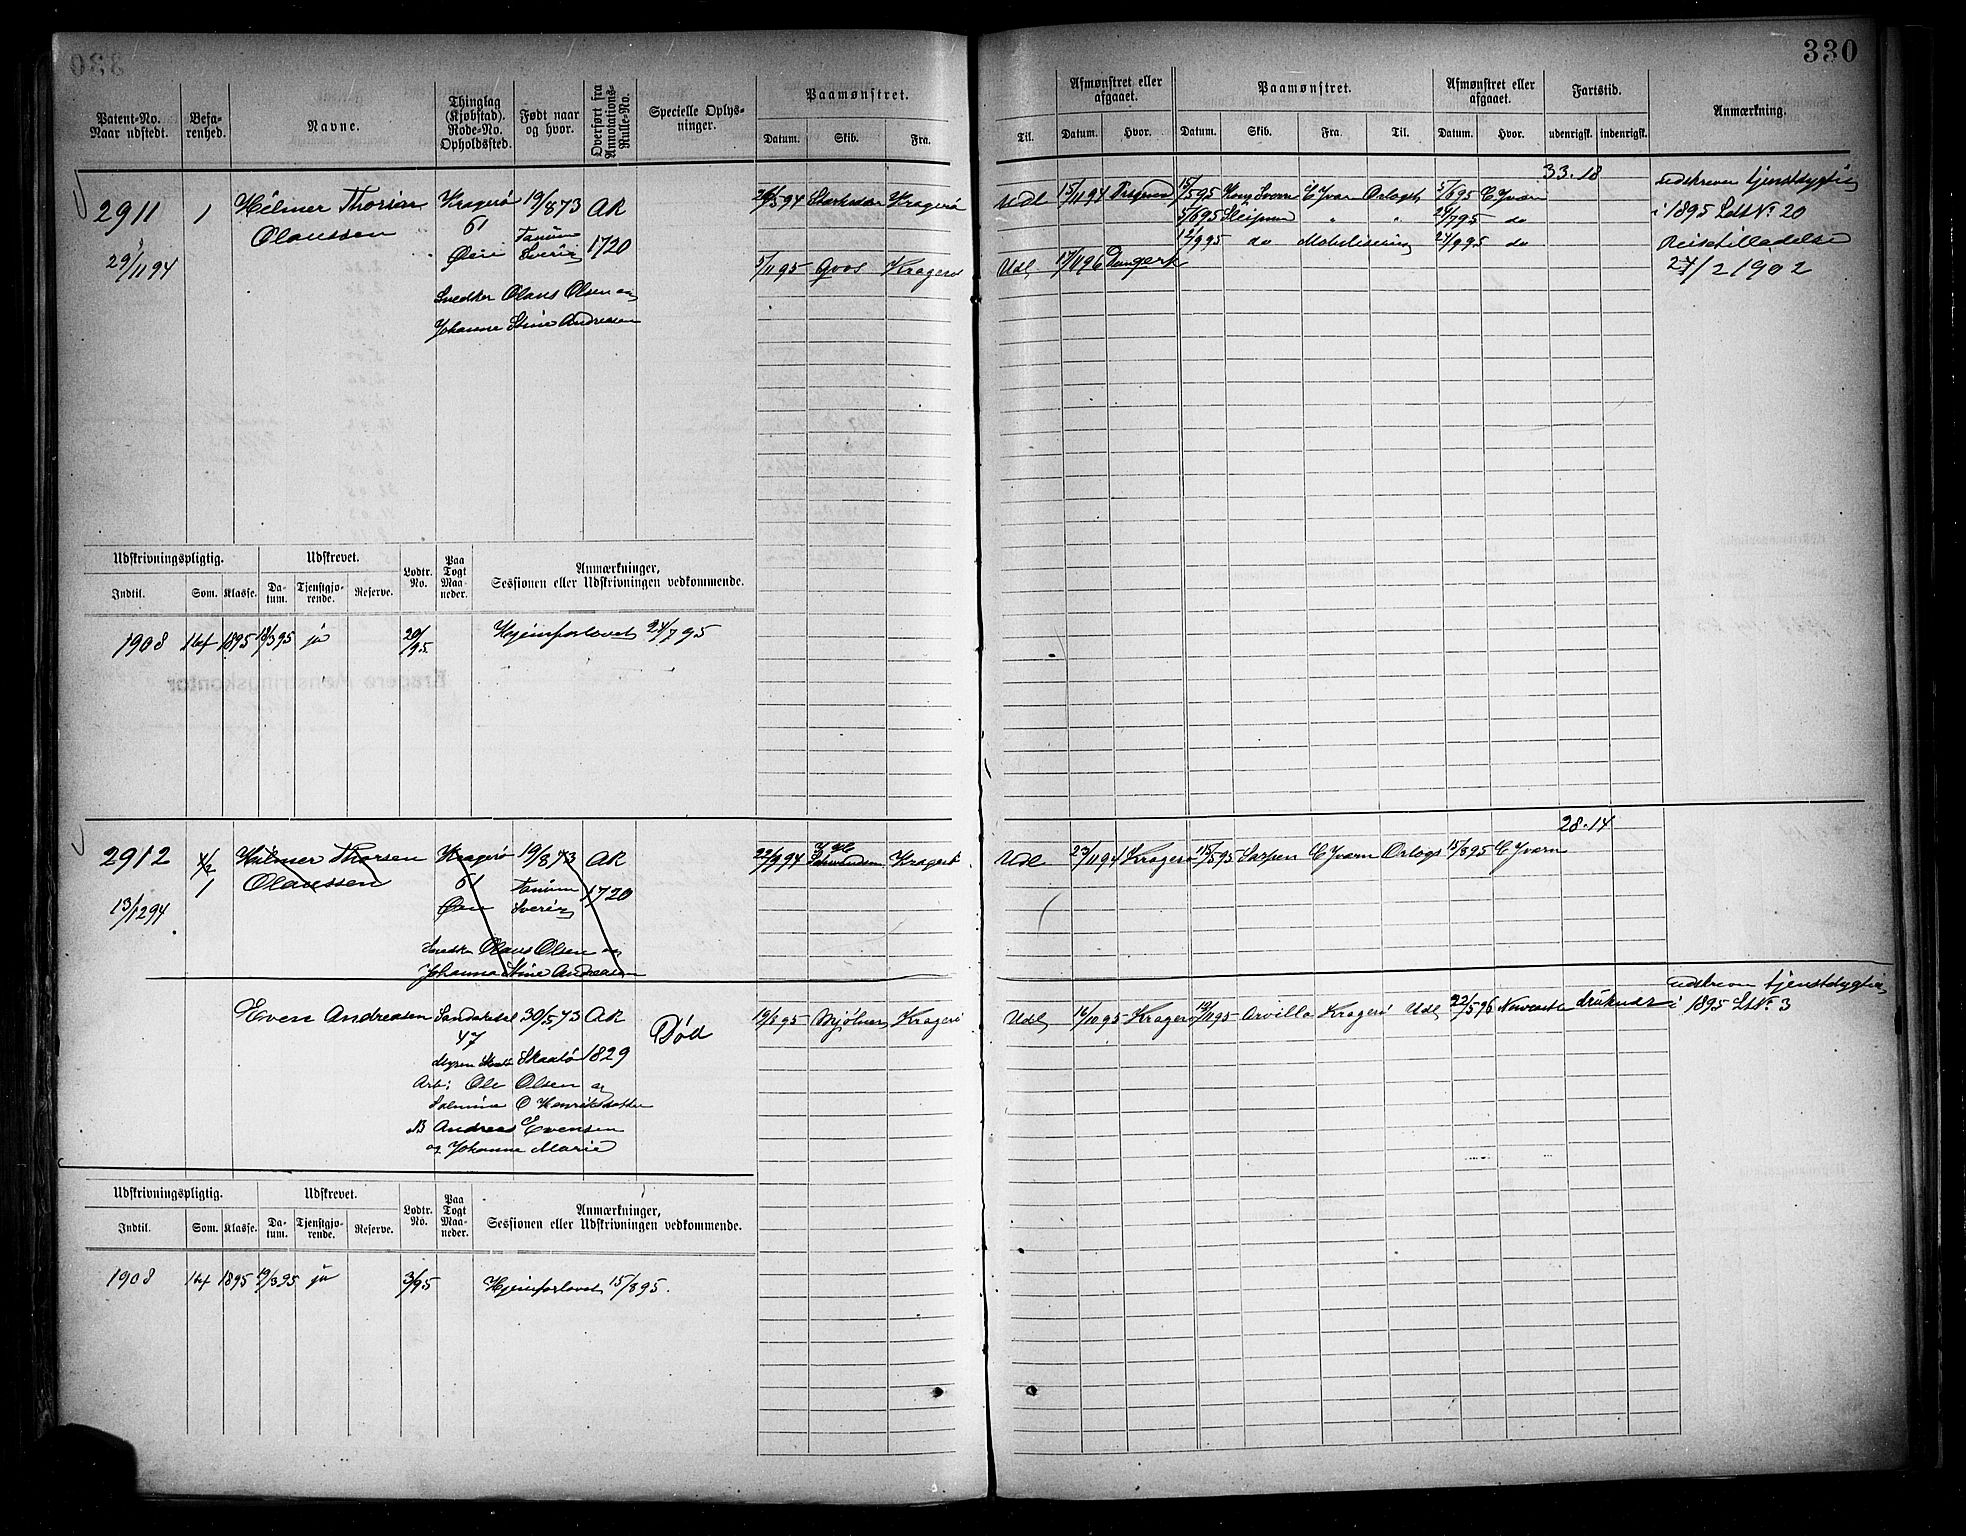 330
Patent-No. Naar udstedt.
Befarenhed.
Navne.
Thinglag (Kjøbstad). Rode-No. Opholdssted.
Født naar og hvor.
Overført fra Annotations-Rulle-No.
Specielle Oplysninger.
Paamønstret.
Datum. Skib. Fra.
Til.
Afmønstret eller afgaaet.
Datum. Hvor.
Paamønstret.
Datum. Skib. Fra. Til.
Afmønstret eller afgaaet.
Datum. Hvor.
Fartstid.
udenrigsk. indenrigsk.
Anmærkning.
33.18
2911 1 Hilmer Thorsen Kragerø 19/8 73 AR
Olaussen 61 Tanum 1720
29/11 94 Øen Sverig
Snedker Olaus Olsen og
Johanne Stine Andreasen
94 Kragerø Udl 15/11 94
5/11 95 Kragerø Udl 96
95 C Jvarn Orlogst 5/6 95 C Jvarn
5/6 95 Sleipner " " 24/7 95 do
12/9 95 do Mobilisering 24/9 95 do
udskreven tjenstdygtig
i 1895 Ldt No. 20
Reisetilladelse
27/2 1902
Udskrivningspligtig. Udskrevet. Lodtr. No. Paa Togt Maaneder. Anmærkninger, Sessionen eller Udskrivningen vedkommende.
Indtil. Som. Klasse. Datum. Tjenstgjørende. Reserve.
1908 1895 18/3 95 ja 20/95 Hjemforlovet 24/7 95
28.14
2912 1 Hilmer Thorsen Kragerø 19/8 73 AR
Olaussen 61 Tanum 1720
13/12 94 Øen Sverig
Snedker Olaus Olsen og
Johanna Stine Andreasen
94 Kragerø Udl 23/11 94 Kragerø 15/5 95 Sarpen C Jvarn Orlogs 15/8 95 C Jvarn
Even Andreasen Sandøkedal 30/5 73 AR Død
47
Skaatø 1829
Arb: Ole Olsen og
O Henriksdatter
NB Andreas Evensen
og Johanne Marie
19/8 95 Mjølner Kragerø Udl 16/10 95 Kragerø 95 Arvilla Kragerø Udl 22/5 96 Newcastle druknet
udskreven tjenstdygtig
i 1895 Lt No. 3
Udskrivningspligtig. Udskrevet. Lodtr. No. Paa Togt Maaneder. Anmærkninger, Sessionen eller Udskrivningen vedkommende.
Indtil. Som. Klasse. Datum. Tjenstgjørende. Reserve.
1908 1895 19/3 95 ja 3/95 Hjemforlovet 15/8 95.